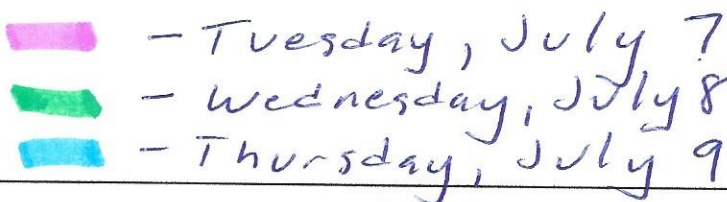 - Tuesday, July 7
- Wednesday, July 8
- Thursday, July 9